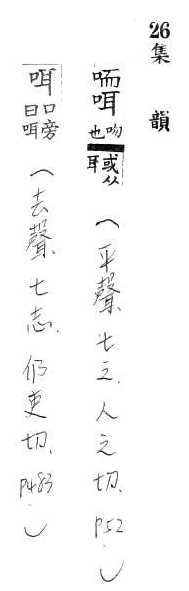 26集韻
唡咡吻也或从耳（平聲七之，人之切，P52）
咡口旁曰咡（去聲七志，仍吏切，P483）